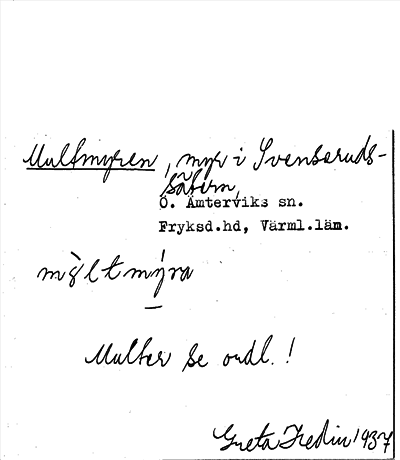 Multmyren, myr i Svenseruds-
sätern,
Ö. Ämterviks sn.
Fryksd.hd, Värml.län.
mỳltmýra
Multer se ordl.!
Greta Hedin 1937